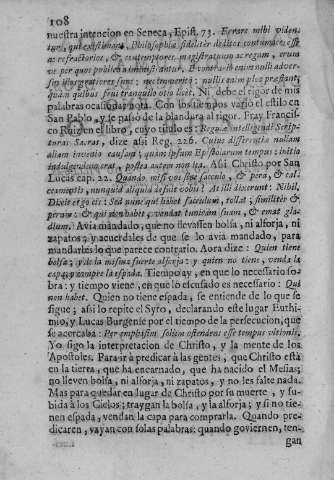 108
nuestra intencion en Seneca, Epist. 73. Errare mihi viden-
tur, qui existimant, Philosophiæ fideliter deditos contumaces esse
ac refractarios, & contemptores magistratuum ac regum, eorum
ve per quos publica administrantur. E contrario enim nulli adver-
sus illos gratiores sunt: nec immerito: nullis enim plus præstant,
quàm quibus frui tranquilo otio licet. Ni debe el rigor de mis
palabras ocasionar nota. Con los tiempos vario el estilo en
San Pablo, y se passò de la blandura al rigor. Fray Francis-
co Ruiz en el libro, cuyo titulo es: Regulæ intelligendi Scrip-
turas Sacras, dize assi Reg. 226. Cuius differentiæ nullam
aliam invenio causam, quàm ipsum Epistolarum tempus: initio
indulgendum erat, postea autem non ita. Assi Christo por San
Lucas cap. 22. Quando misi vos sine sacculo, & pera, & cal-
ceamentis, nunquid aliquid defuit vobis? At illi dixerunt: Nihil.
Dixit ergo eis: Sed nunc qui habet sacculum, tollat; similiter &
peram: & qui non habet, vendat tunicam suam, & emat gla-
dium. Avia mandado, que no llevassen bolsa, ni alforja, ni
zapatos, y acuerdales de que se lo avia mandado, para
mandarles lo que parece contrario. Aora dize: Quien tiene
bolsa, y de la misma suerte alforja: y quien no tiene, venda la
capa, y compre la espada. Tiempo ay, en que lo necessario so-
bra: y tiempo viene, en que lo escusado es necessario: Qui
non habet. Quien no tiene espada, se entiende de lo que se
sigue; assi lo repite el Syro, declarando este lugar Euthi-
mio, y Lucas Burgense por el tiempo de la persecucion, que
se acercaba: Per amphibsim solùm ostendens esse tempus ultionis.
Yo sigo la interpretacion de Christo, y la mente de los
Apostoles. Para ir à predicar à las gentes, que Christo està
en la tierra, que ha encarnado, que ha nacido el Mesias;
no lleven bolsa, ni alforja, ni zapatos, y no les falte nada.
Mas para quedar en lugar de Christo por su muerte, y su-
bida à los Cielos; traygan la bolsa, y la alforja; y si no tie-
nen espada, vendan la capa para comprarla. Quando pre-
dicaren, vayan con solas palabras: quando goviernen, ten-
gan